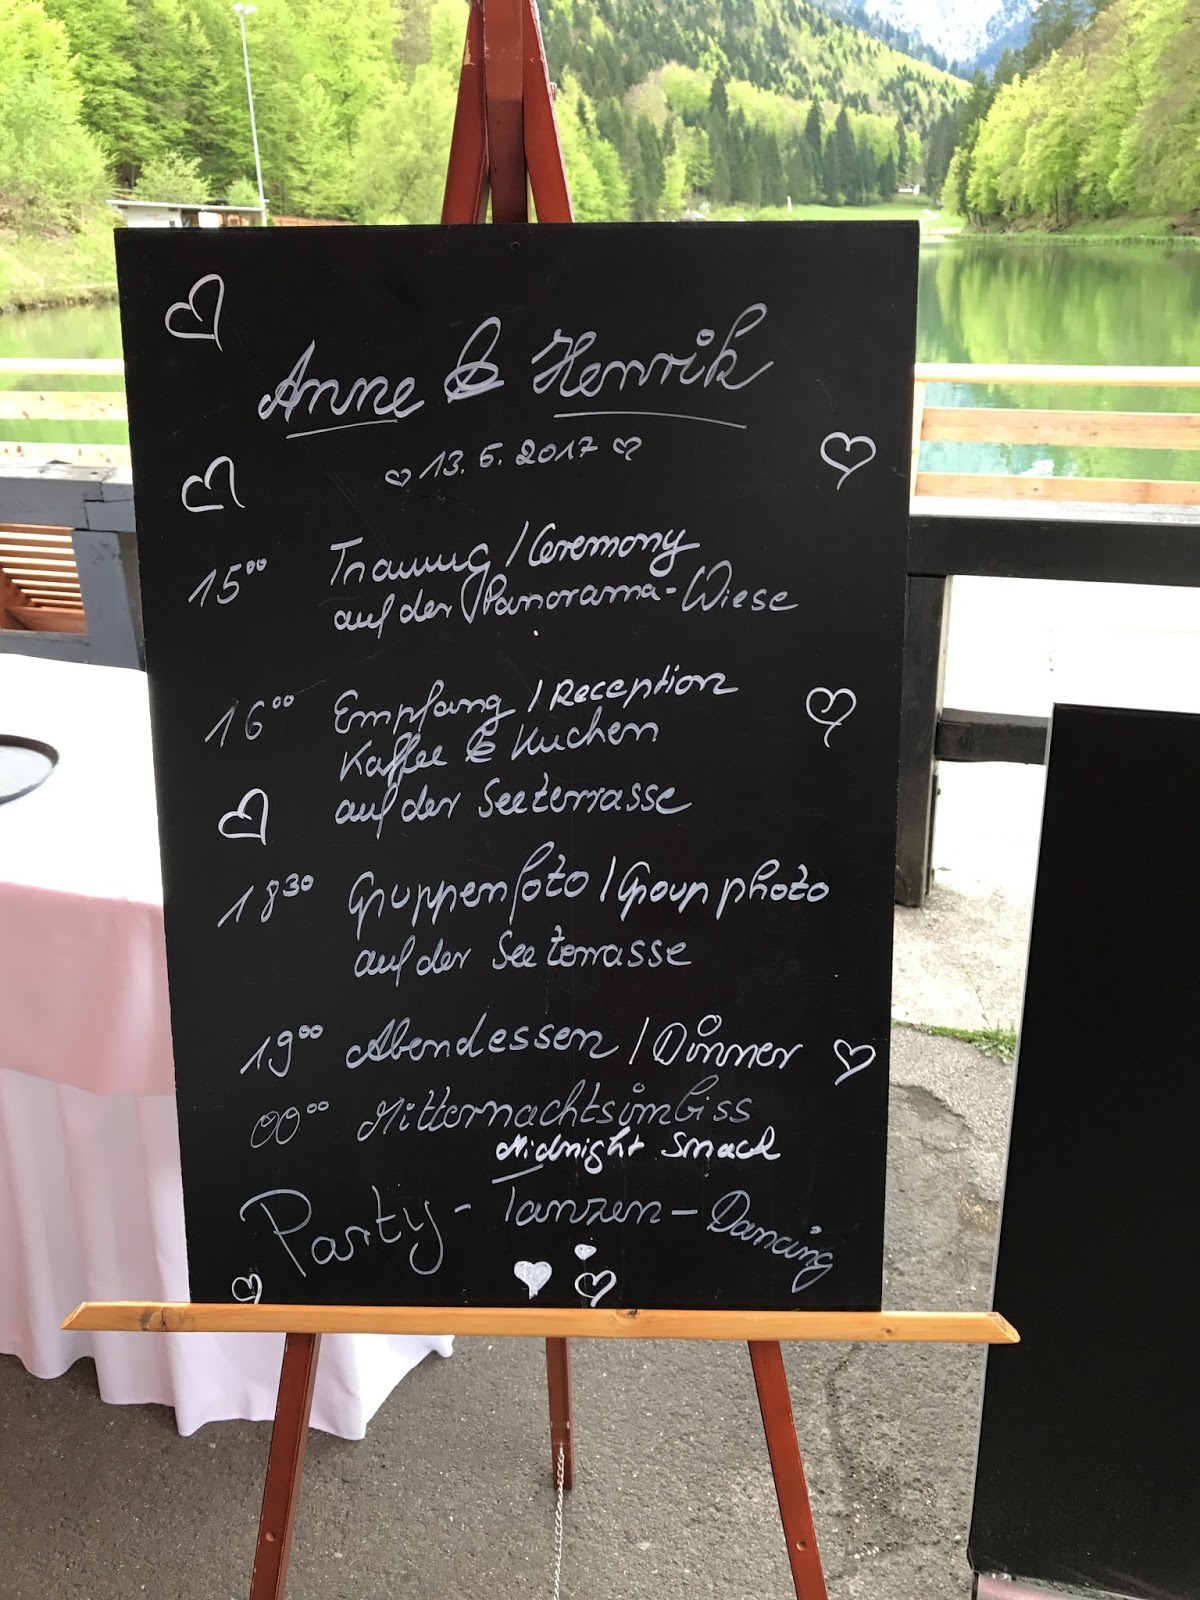 Anne & Henrik
13.5.2017
15⁰⁰ Trauung / Ceremony
auf der Panorama-Wiese
16⁰⁰ Empfang / Reception
Kaffee & Kuchen
auf der Seeterrasse
18³⁰ Gruppenfoto / Group photo
auf der Seeterrasse
19⁰⁰ Abendessen / Dinner
00⁰⁰ Mitternachtsimbiss
Midnight Snack
Party - Tanzen - Dancing